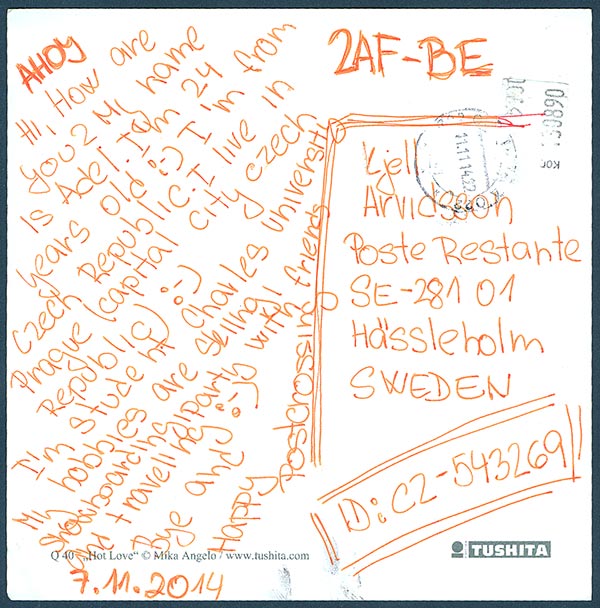 AHOY
Hi, How are
you? My name
is Adel. I am 24
years old :-) I'm from
Czech Republic. I live in
Prague (capital city Czech
Republic) :-)
I'm student Charles University
My hobbies are skiing,
snowboarding, party with friends
and travelling :-)
Bye and
Happy postcrossing
7.11.2014
2AF-BE
Kjell
Arvidsson
Poste Restante
SE-281 01
Hässleholm
SWEDEN
ID: CZ-543269
Q 40 „Hot Love“ © Mika Angelo / www.tushita.com
TUSHITA